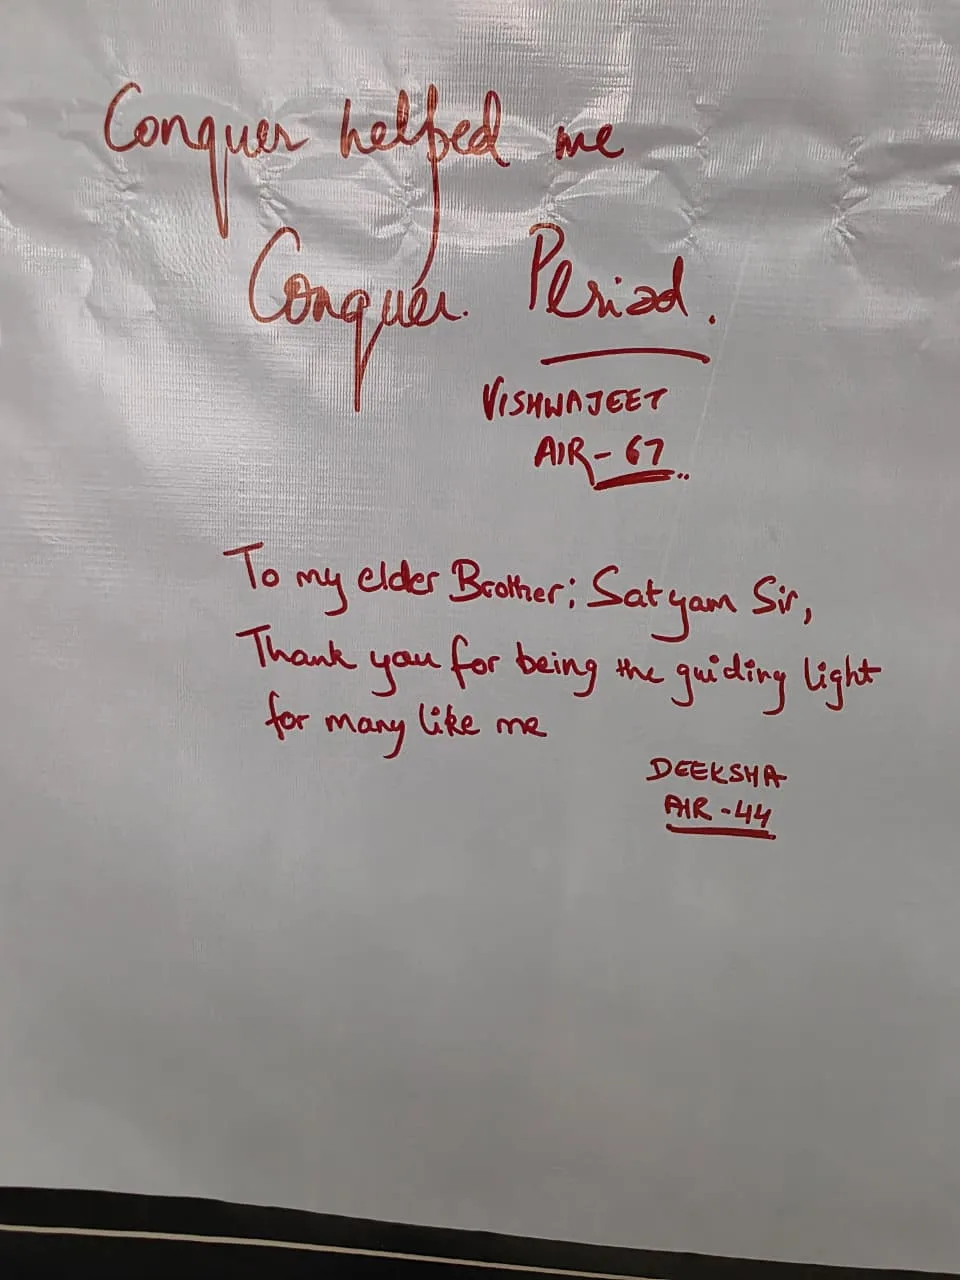 Conquer helped me
Conquer Period.
VISHWAJEET
AIR - 67
To my elder Brother; Satyam Sir,
Thank you for being the guiding light
for many like me
DEEKSHA
AIR - 44